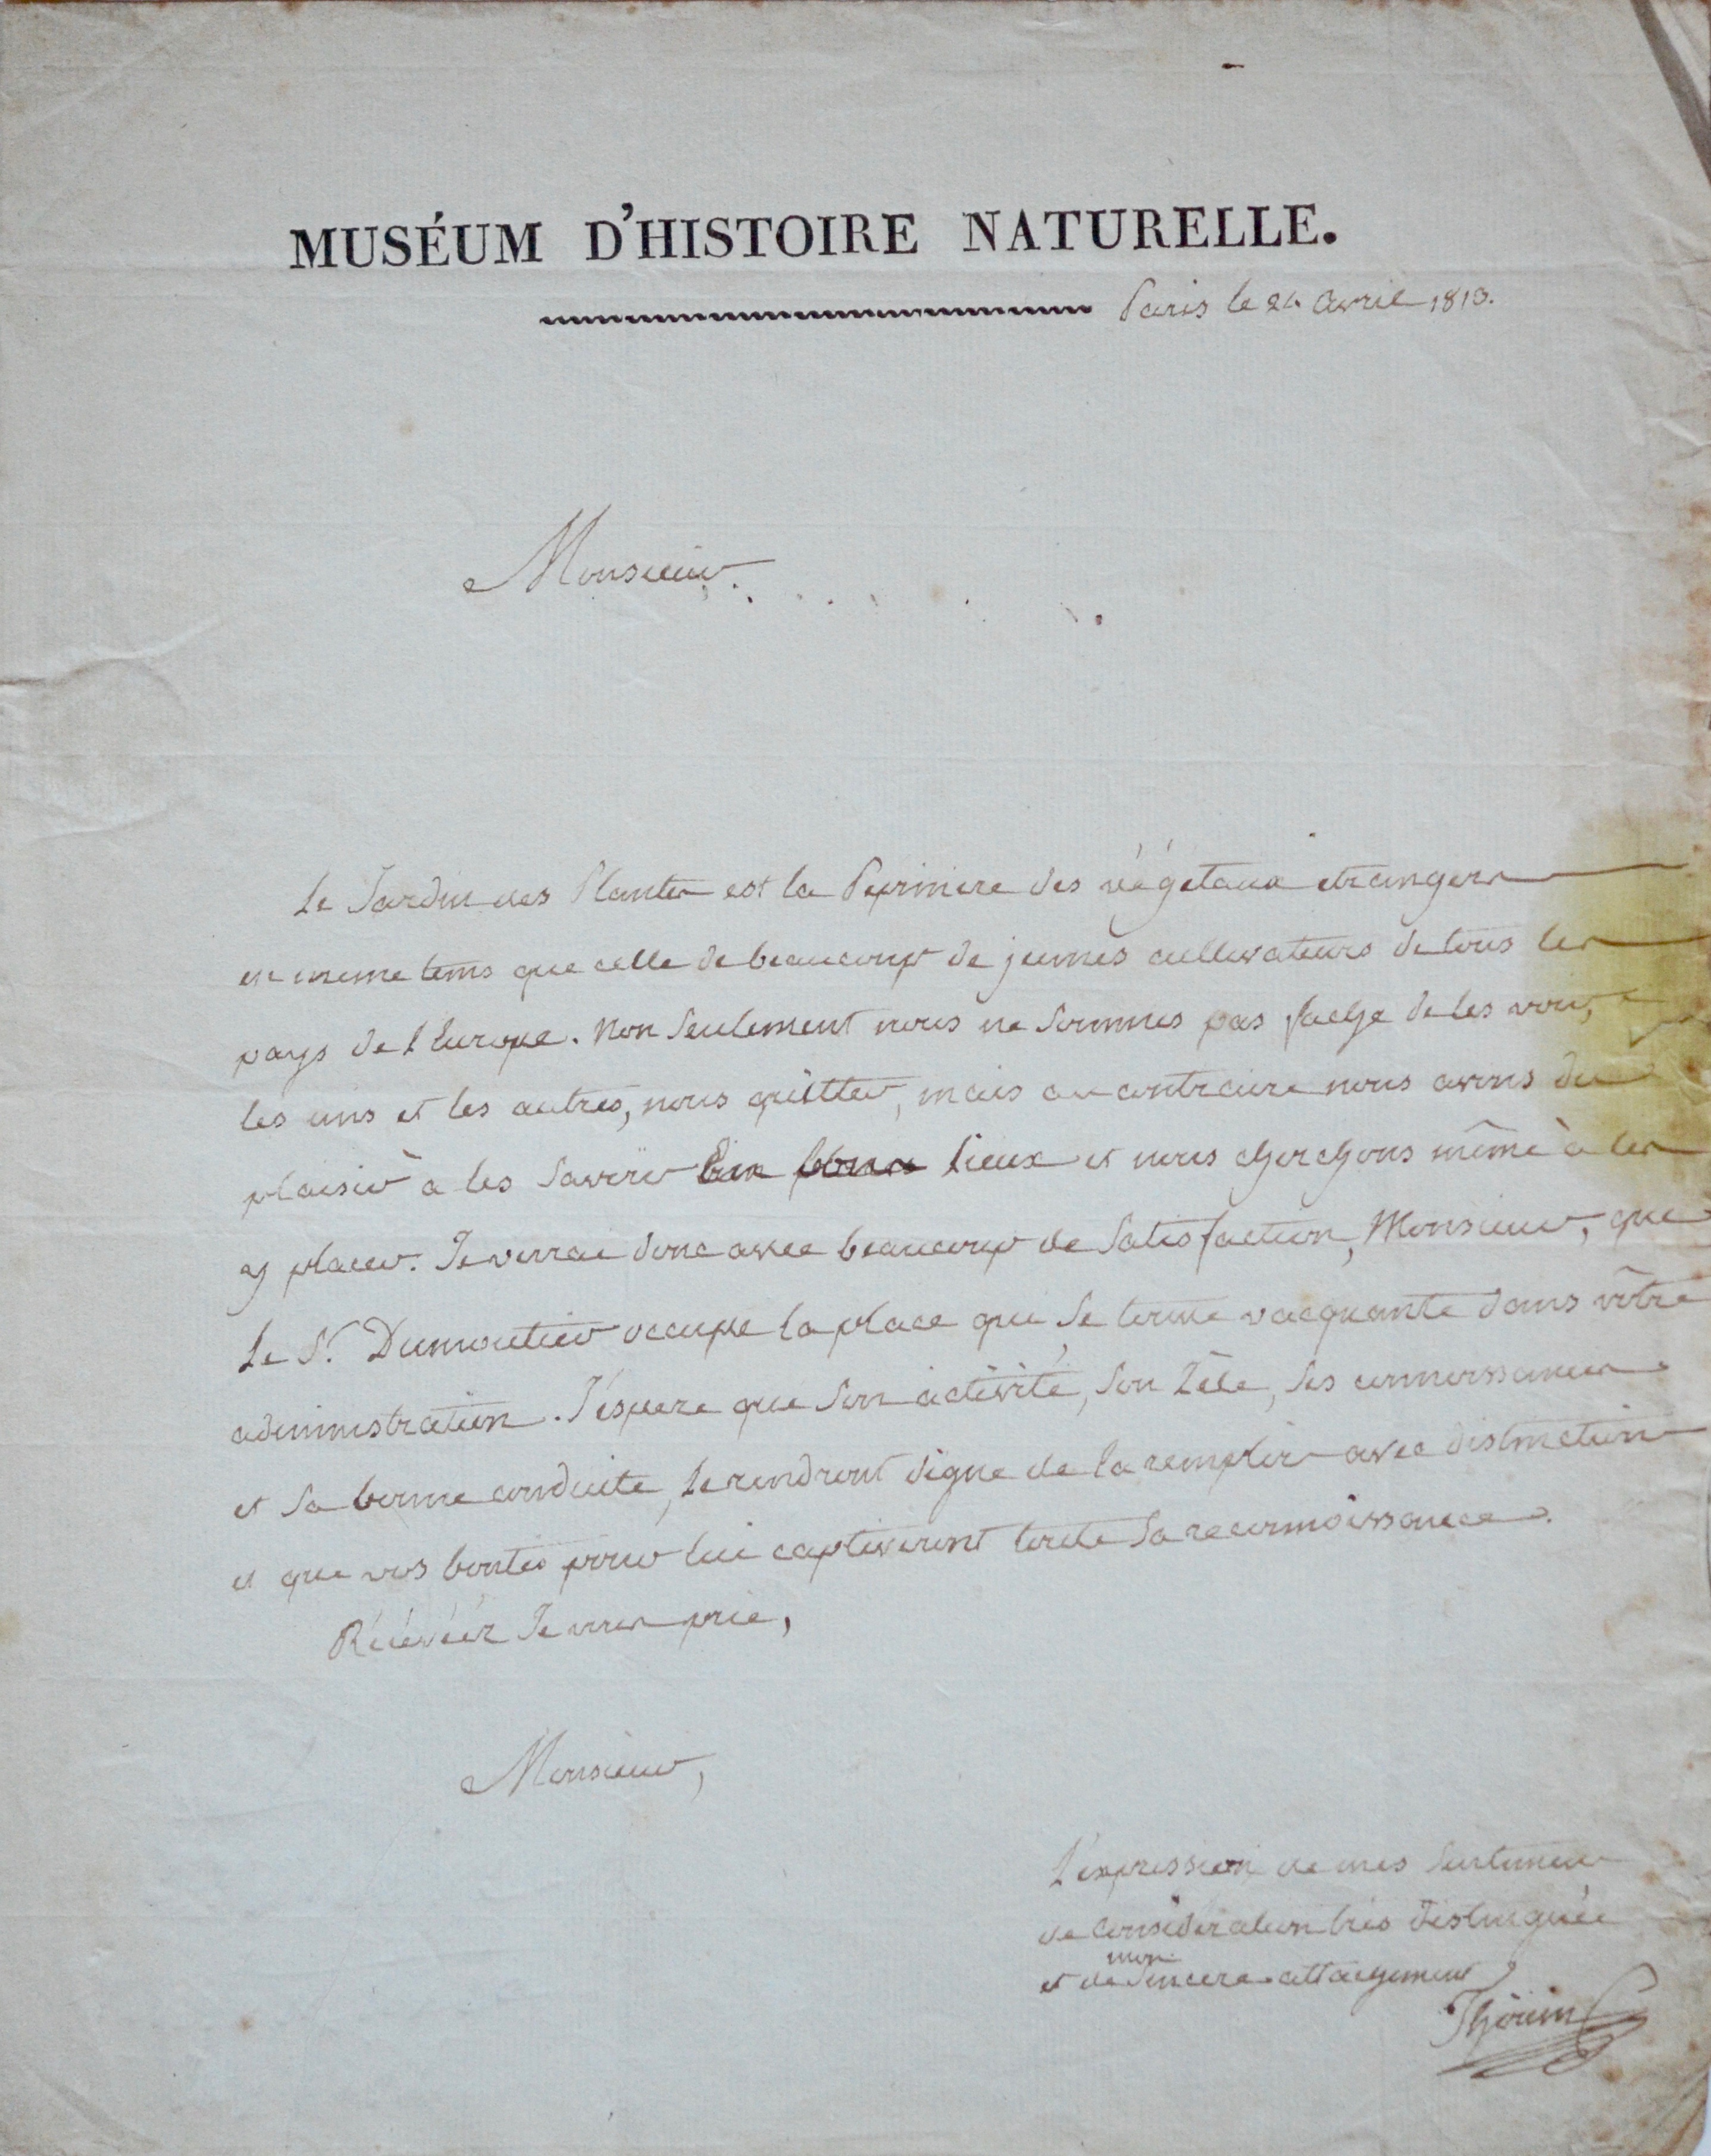 MUSÉUM D'HISTOIRE NATURELLE.
Paris le 24 avril 1813.
Monsieur
Le Jardin des Plantes est la Pepiniere des végétaux etrangers
en meme tems que celle de beaucoup de jeunes cultivateurs de tous les
pays de l'Europe. Non seulement nous ne sommes pas faché de les voir,
les uns et les autres, nous quitter, mais au contraire nous avons du
plaisir à les savoir lieux et nous cherchons même à les
y placer. Je verrai donc avec beaucoup de satisfaction, Monsieur, que
le Sr. Dumoutier occupe la place qui se trouve vacquante dans vôtre
administration. J'éspere que son activité, son zèle, ses connoissances
et sa bonne conduite, le rendront digne de la remplir avec distinction
et que vos bontés pour lui captiveront toute sa reconnoissance.
Récévéz Je vous prie,
Monsieur,
L'expression de mes sentimens
de consideration très distinguée
et de mon sincere attachement
Thöuin